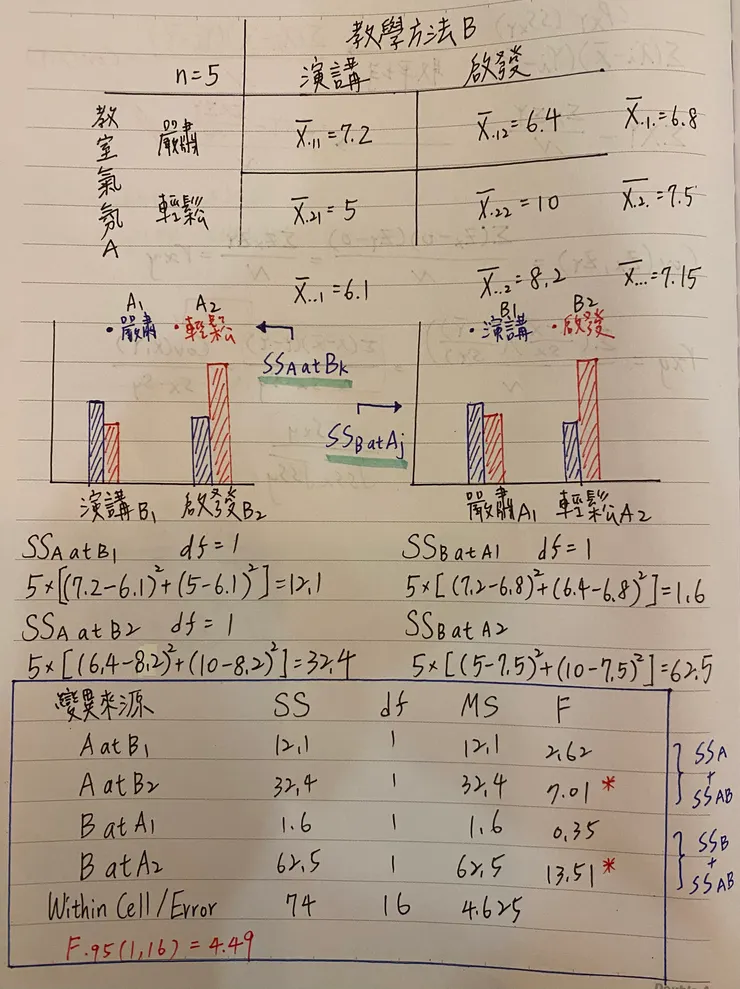 教學方法B
n=5 演講 啟發
教室氣氛A
嚴肅 X̄.11=7.2 X̄.12=6.4 X̄.1.=6.8
輕鬆 X̄.21=5 X̄.22=10 X̄.2.=7.5
X̄..1=6.1 X̄..2=8.2 X̄...=7.15
A1 A2
•嚴肅 •輕鬆
SSA at Bk
演講B1 啟發B2
B1 B2
•演講 •啟發
SSB at Aj
嚴肅A1 輕鬆A2
SSA at B1 df=1
5×[(7.2-6.1)²+(5-6.1)²]=12.1
SSA at B2 df=1
5×[(6.4-8.2)²+(10-8.2)²]=32.4
SSB at A1 df=1
5×[(7.2-6.8)²+(6.4-6.8)²]=1.6
SSB at A2
5×[(5-7.5)²+(10-7.5)²]=62.5
變異來源 SS df MS F
A at B1 12.1 1 12.1 2.62
A at B2 32.4 1 32.4 7.01 *
B at A1 1.6 1 1.6 0.35
B at A2 62.5 1 62.5 13.51 *
Within Cell/Error 74 16 4.625
F.95(1,16)=4.49
SSA
+
SSAB
SSB
+
SSAB